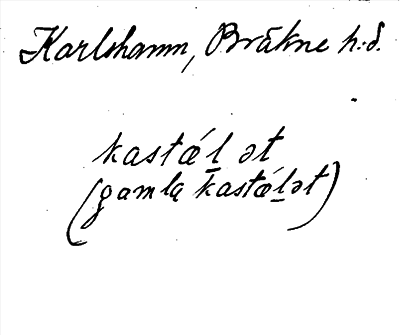 Karlshamn, Bräkne h:d.
kastǽl̲ ət
(gamlą kastǽl̲ət)